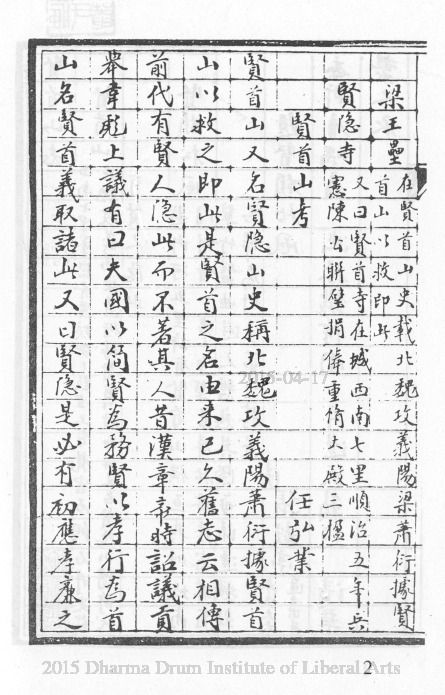 梁王壘 在賢首山史載北魏攻義陽梁蕭衍據賢
首山以救即此
賢隱寺 又曰賢首寺在城西南七里順治五年兵
憲陳公聯璧捐俸重脩大殿三楹
賢首山考 任弘業
賢首山又名賢隱山史稱北魏攻義陽蕭衍據賢首
山以救之即此是賢首之名由来已久舊志云相傳
前代有賢人隱此而不著其人昔漢章帝時詔議貢
舉韋彪上議有曰夫國以簡賢為務賢以孝行為首
山名賢首義取諸此又曰賢隱是必有初應孝廉之
2015-04-17
2
2015 Dharma Drum Institute of Liberal Arts